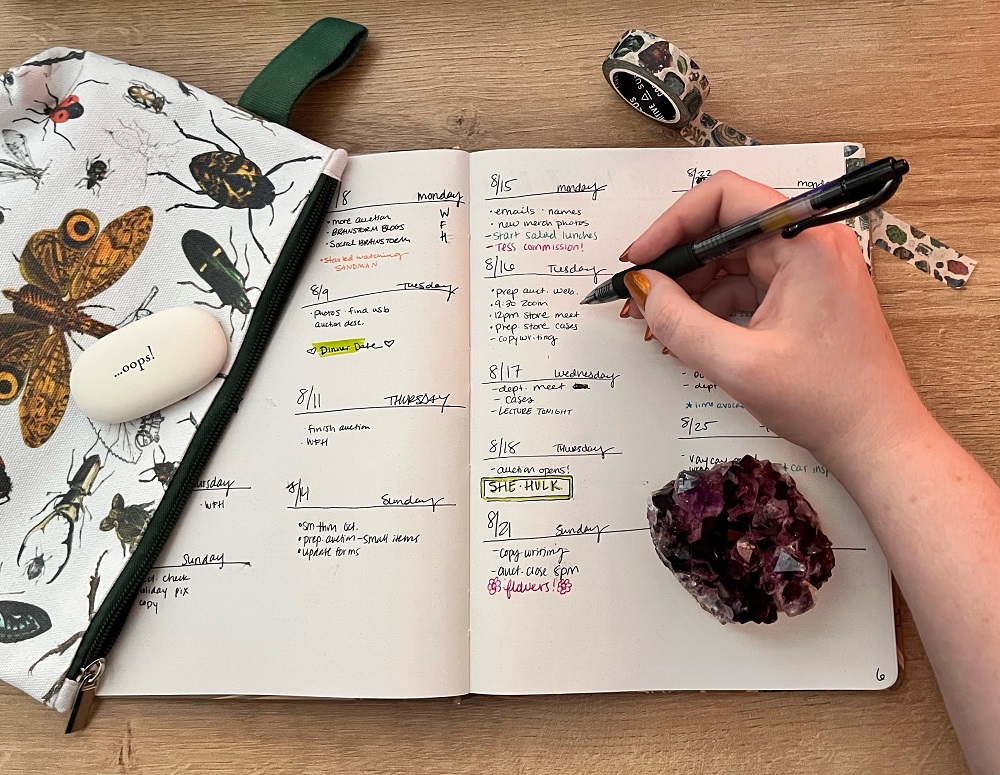 ...oops!
8 monday
• more auction W
• BRAINSTORM BLOGS F
• SOCIAL BRAINSTORM H
• started watching
SANDMAN
8/9 Tuesday
• photos • find usb
auction desc.
♡ Dinner Date ♡
8/11 THURSDAY
• finish auction
• WFH
8/14 Sunday
• prep auction - small items
• update forms
• WFH
Sunday
check
pix
copy
8/15 monday
• emails • names
• new merch photos
- Start salad lunches
- Tess commission!
8/16 Tuesday
• prep auct. web.
• 9:30 zoom
• 12pm store meet
• prep store cases
- copywriting
8/17 Wednesday
- dept. meet
- cases
- LECTURE TONIGHT
8/18 Thursday
- auction opens!
SHE-HULK
8/21 Sunday
- copy writing
- auct. close 8pm
flowers!
8/22
- dept
8/25
+ car
6